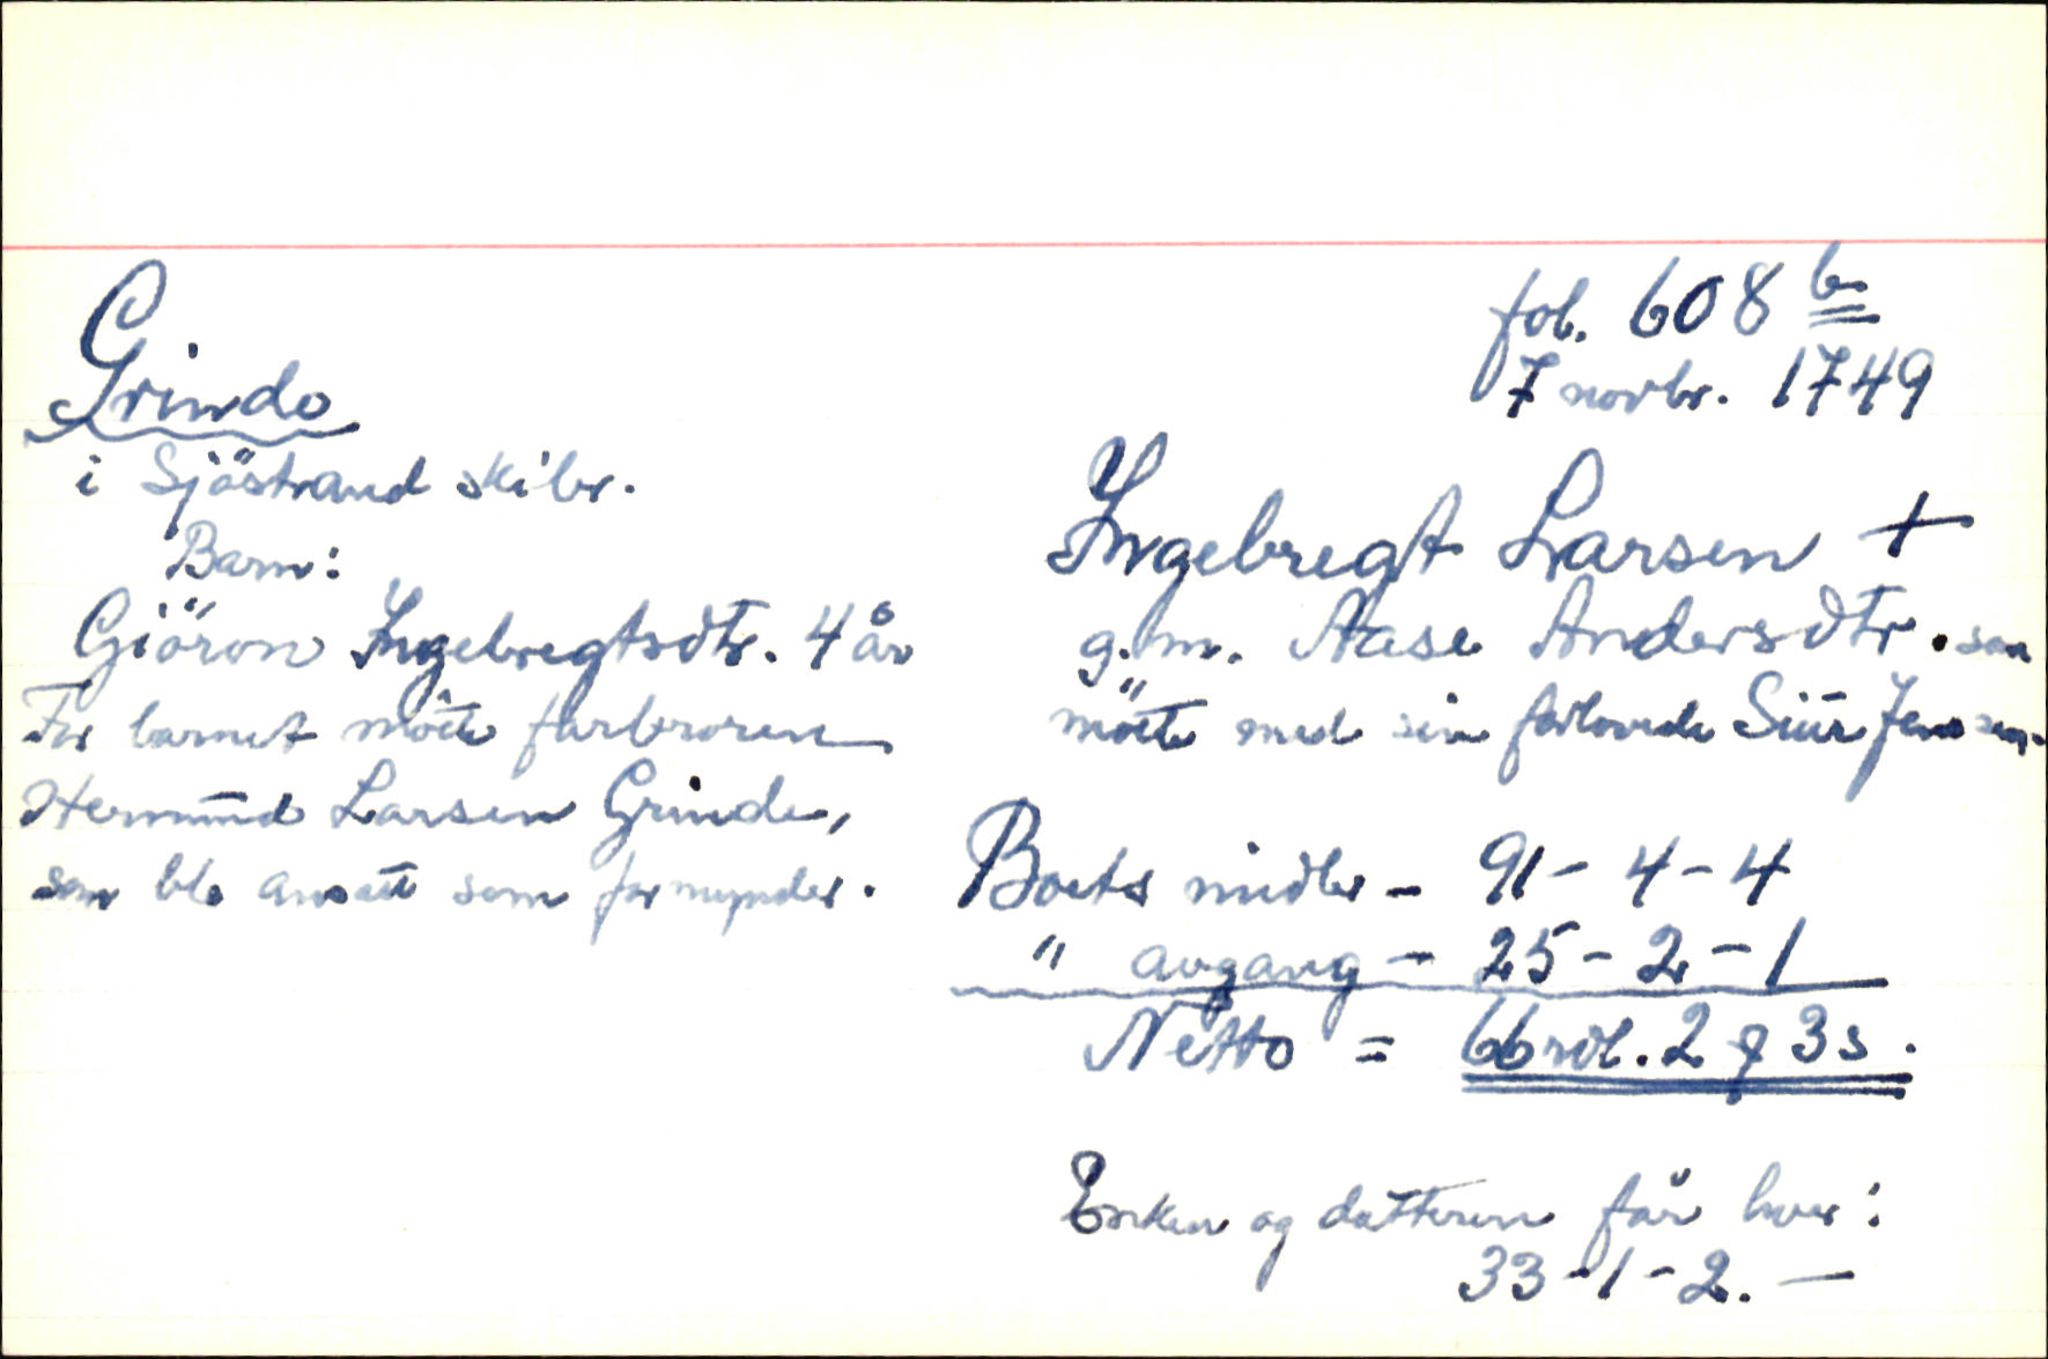 fol. 608 b
7 novbr. 1749
Grinde
i Sjöstrand skibr.
Barn:
Giöron Ingebregtsdtr. 4 år
For barnet mötte farbroren
Hermund Larsen Grinde,
som ble ansatt som formynder.
Ingebregt Larsen +
g. m. Aase Andersdtr. som
mötte med sin forlovede Siur Jenssen.
Boets midler - 91 - 4 - 4
" avgang - 25 - 2 - 1
Netto = 66 rdl. 2 ʒ 3 s.
Enken og datteren får hver:
33 - 1 - 2. —